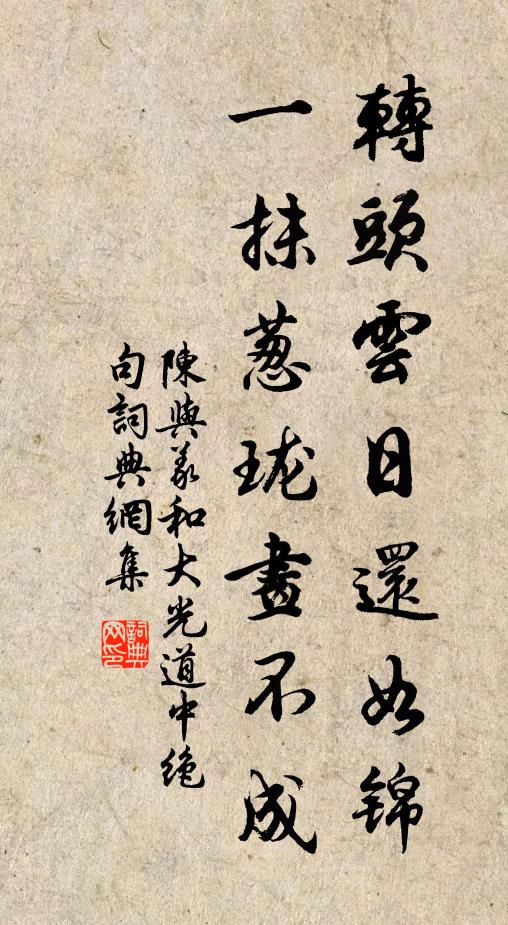 轉頭雲日還如錦
一抹葱瓏畫不成
陳與義和大光道中絶
句詞典網集
詞典
网印